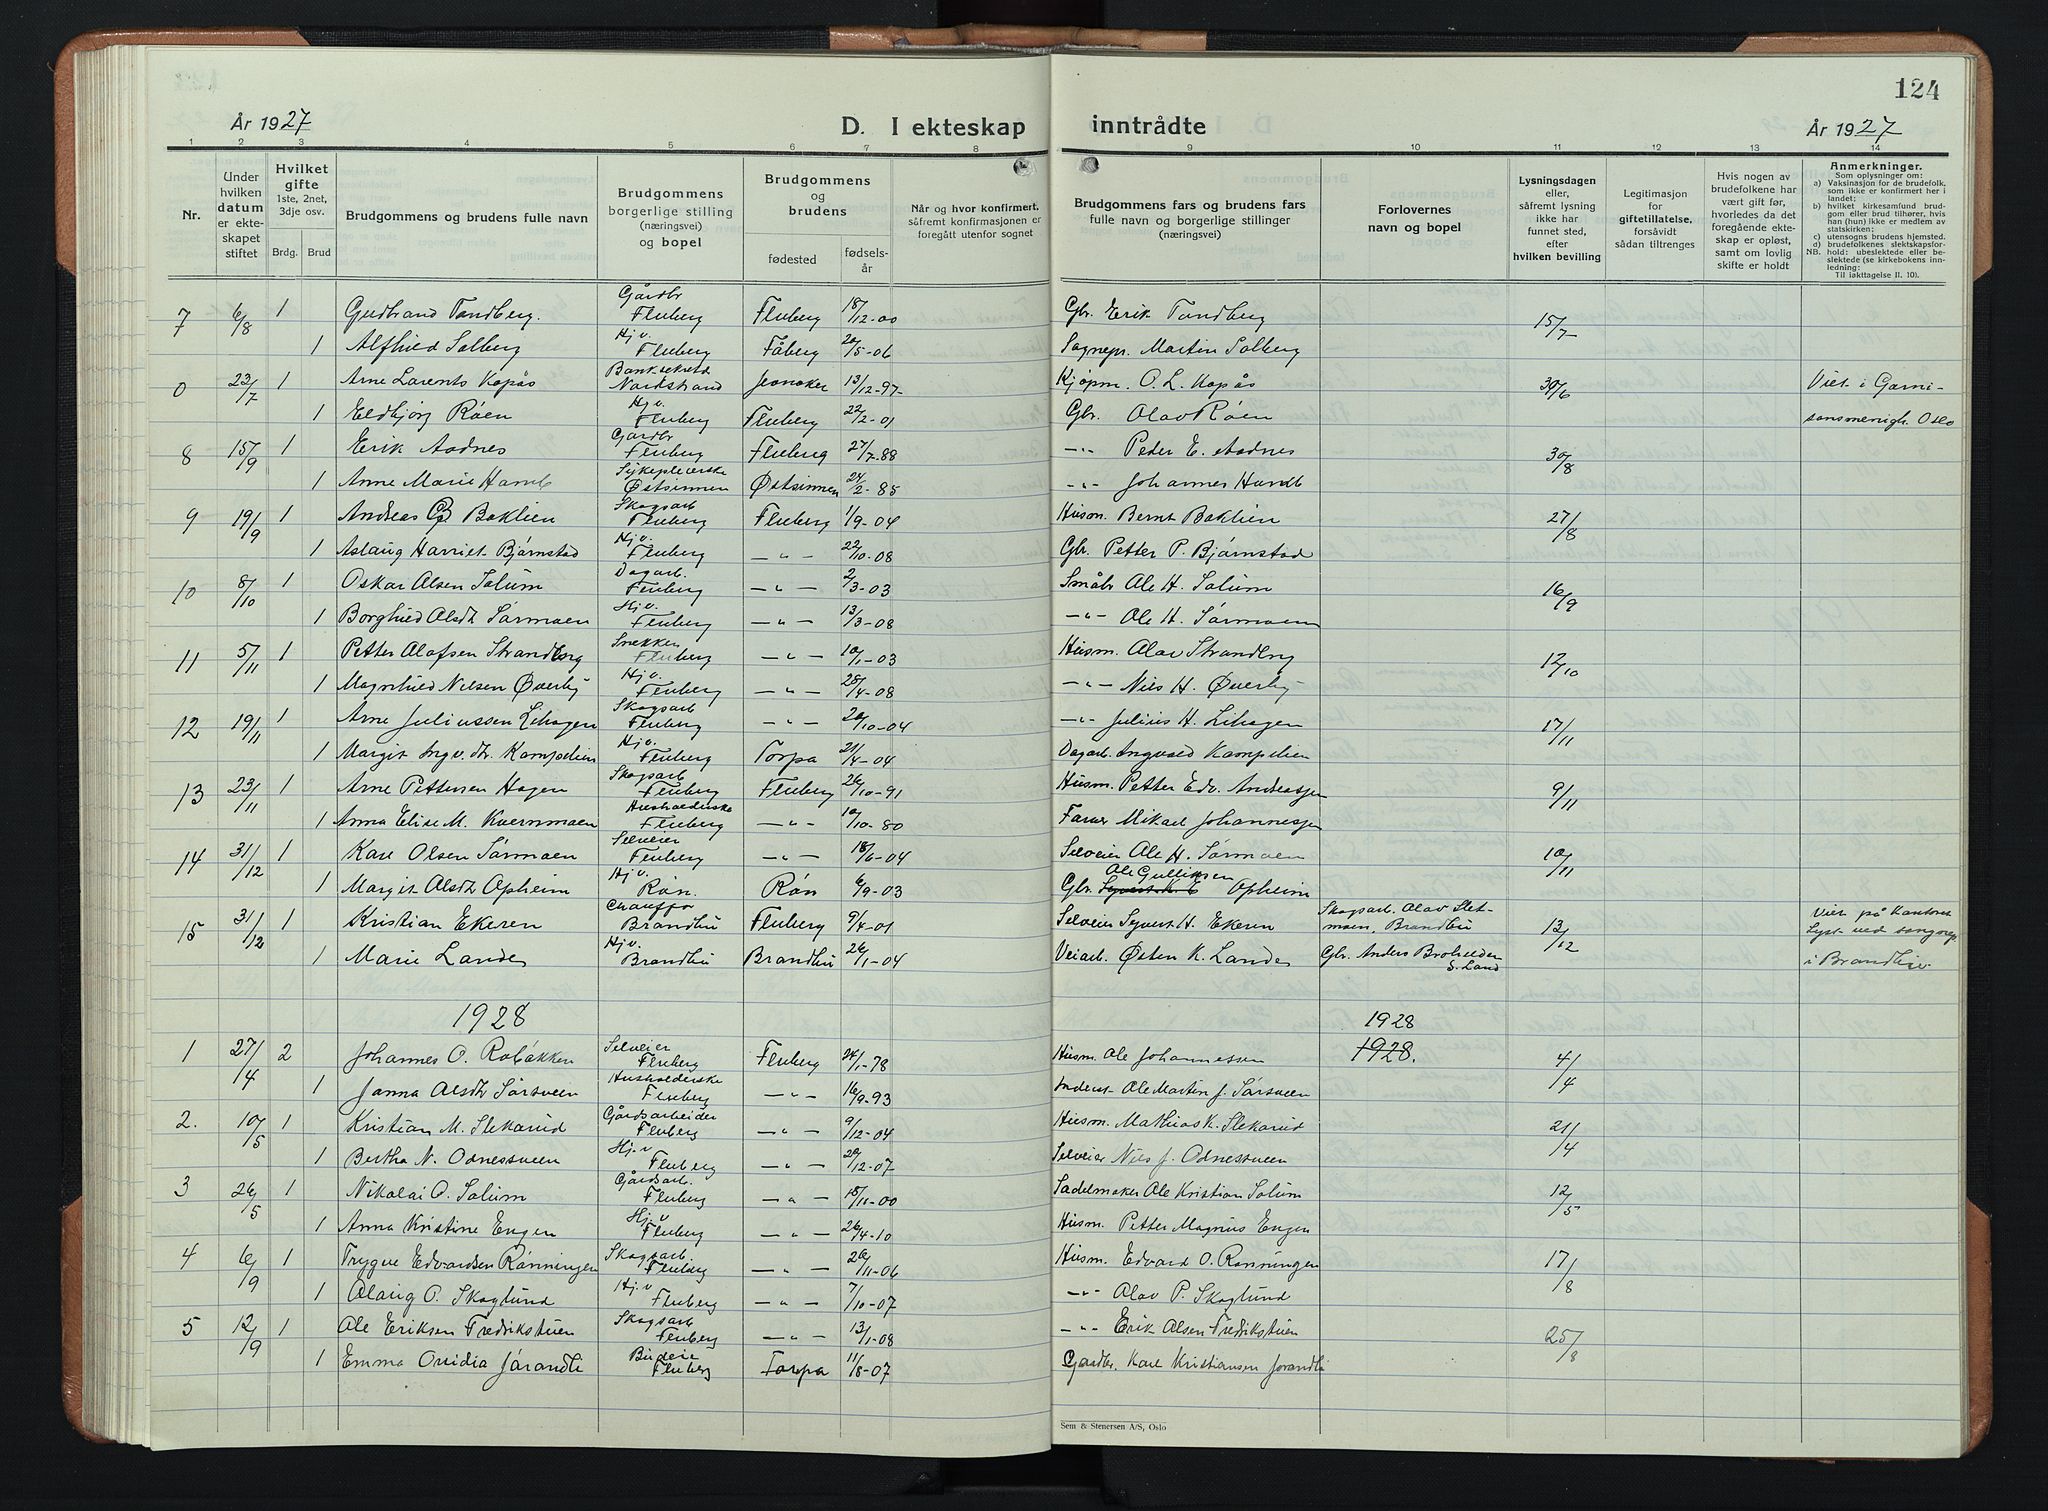 124
År 1927 D. I ekteskap inntrådte År 1927
1 2 3 4 5 6 7 8 9 10 11 12 13 14
Nr.
Under hvilken datum er ekteskapet stiftet
Hvilket gifte 1ste, 2net, 3dje osv.
Brdg. Brud
Brudgommens og brudens fulle navn
Brudgommens borgerlige stilling (næringsvei) og bopel
Brudgommens og brudens
fødested
fødselsår
Når og hvor konfirmert, såfremt konfirmasjonen er foregått utenfor sognet
Brudgommens fars og brudens fars fulle navn og borgerlige stillinger (næringsvei)
Forlovernes navn og bopel
Lysningsdagen eller, såfremt lysning ikke har funnet sted, efter hvilken bevilling
Legitimasjon for giftetillatelse, forsåvidt sådan tiltrenges
Hvis nogen av brudefolkene har vært gift før, hvorledes da det foregående ekteskap er opløst, samt om lovlig skifte er holdt
Anmerkninger.
Som oplysninger om:
a) Vaksinasjon for de brudefolk, som ikke er konfirmert her i landet:
b) hvilket kirkesamfund brudgom eller brud tilhører, hvis han (hun) ikke er medlem av statskirken:
c) utensogns brudens hjemsted.
d) brudefolkenes slektskapsforhold: ubeslektede eller beslektede (se kirkebokens innledning:
NB.
Til iakttagelse II. 10).
7 6/8 1 Gudbrand Tandberg. Gårdbr Fluberg Fluberg 18/12-00 Gbr. Erik Tandberg 15/7
1 Alfhild Solberg Hjv. Fluberg Fåberg 20/5-06 Sognepr. Martin Solberg
0 23/7 1 Arne Larents Kopås Nordstrand 13/12-97 Kjøpm. O. L. Kopås 30/6 Viet i Garni-
1 Eldbjørg Røen Hjv. Fluberg Fluberg 22/2-01 Gbr. Olav Røen sonsmenigh. Oslo
8 15/9 1 Erik Aadnes Gardbr Fluberg Fluberg 27/7-88 -"- Peder E. Aadnes 30/8
1 Anne Marie Sykepleierske Østsinnen Østsinnen 24/2-85 -"- Johannes
9 19/9 1 Andreas B Baklien Skogsarb Fluberg Fluberg 1/9-04 Husm. Bernt Baklien 27/8
1 Aslaug Harriet Bjørnstad Hjv. Fluberg -"- 22/10-08 Gbr. Petter P. Bjørnstad
10 8/10 1 Oskar Olsen Solum Dagarb. Fluberg -"- 2/3-03 Småbr Ole H. Solum 16/9
1 Borghild Olsdtr Sørmoen Hjv. Fluberg -"- 13/3-08 -"- Ole H. Sørmoen
11 5/11 1 Petter Olafsen Strandberg Snekker Fluberg -"- 10/1-03 Husm. Olav Strandbrg 12/10
1 Magnhild Nilsen Øverby Hjv. Fluberg -"- 25/4-08 -"- Nils H. Øverby
12 19/11 1 Arne Juliussen Lihagen Skogsarb Fluberg -"- 20/10-04 -"- Julius H. Lihagen 17/11
1 Margit Ingv.dtr. Kampelien Hjv. Fluberg Torpa 21/4-04 Dagarb. Ingvald Kampelien
13 23/11 1 Arne Pettersen Hagen Skogsarb Fluberg Fluberg 26/10-91 Husm. Petter Edv. Andreassen 9/11
1 Anna Elise M. Kvernmoen Husholderske Fluberg -"- 10/10-80 Farver Mikael Johannessen
14 31/12 1 Kåre Olsen Sørmoen Selveier Fluberg -"- 18/6-04 Selveier Ole H. Sørmoen 10/11
1 Margit Olsdtr Opheim Hjv. Røn. Røn 6/9-03 Gbr. Ole Gulliksen Opheim
15 31/12 1 Kristian Ekeren Chauffør Brandbu Fluberg 9/4-01 Selveier Syvert H. Ekeren Skogsarb. Olav Slet-moen, Brandbu 13/12 Viet på Kontoret
1 Marie Lande Hjv. Brandbu Brandbu 26/1-04 Veiarb. Østen K. Lande Gbr. Anders S. Land Lyst ved sognepr. i Brandbu
1928 1928
1928.
1 27/4 2 Johannes O. Robakken Selveier Fluberg Fluberg 24/1-78 Husm. Ole Johannessen 4/4
1 Janna Olsdtr Sørsveen Husholderske Fluberg -"- 16/9-93 Inderst Ole Martin J. Sørsveen
2. 10/5 1 Kristian M. Slekarud Gårdsarbeider Fluberg -"- 9/12-04 Husm. Mathias K. Slekarud 21/4
1 Bertha N. Odnessveen Hj.v Fluberg -"- 20/12-07 Selveier Nils J. Odnessveen
3 26/5 1 Nikolai O. Solum Gårdsarb. Fluberg -"- 18/11-00 Sadelmaker Ole Kristian Solum 12/5
1 Anna Kristine Engen Hj.v Fluberg -"- 26/4-10 Husm. Petter Magnus Engen
4 6/9 1 Trygve Edvardsen Rønningen Skogsarb. Fluberg -"- 26/11-06 Husm. Edvard O. Rønningen 17/8
1 Olaug O. Skoglund Hj.v Fluberg -"- 7/10-07 -"- Olav P. Skoglund
5 12/9 1 Ole Eriksen Fredrikstuen Skogsarb Fluberg -"- 13/1-08 -"- Erik Olsen Fredrikstuen 25/8
1 Emma Ovidia Jørandli Budeie Fluberg Torpa 11/8-07 Gardbr. Karl Kristiansen Jørandli
Sem & Stenersen A/S, Oslo